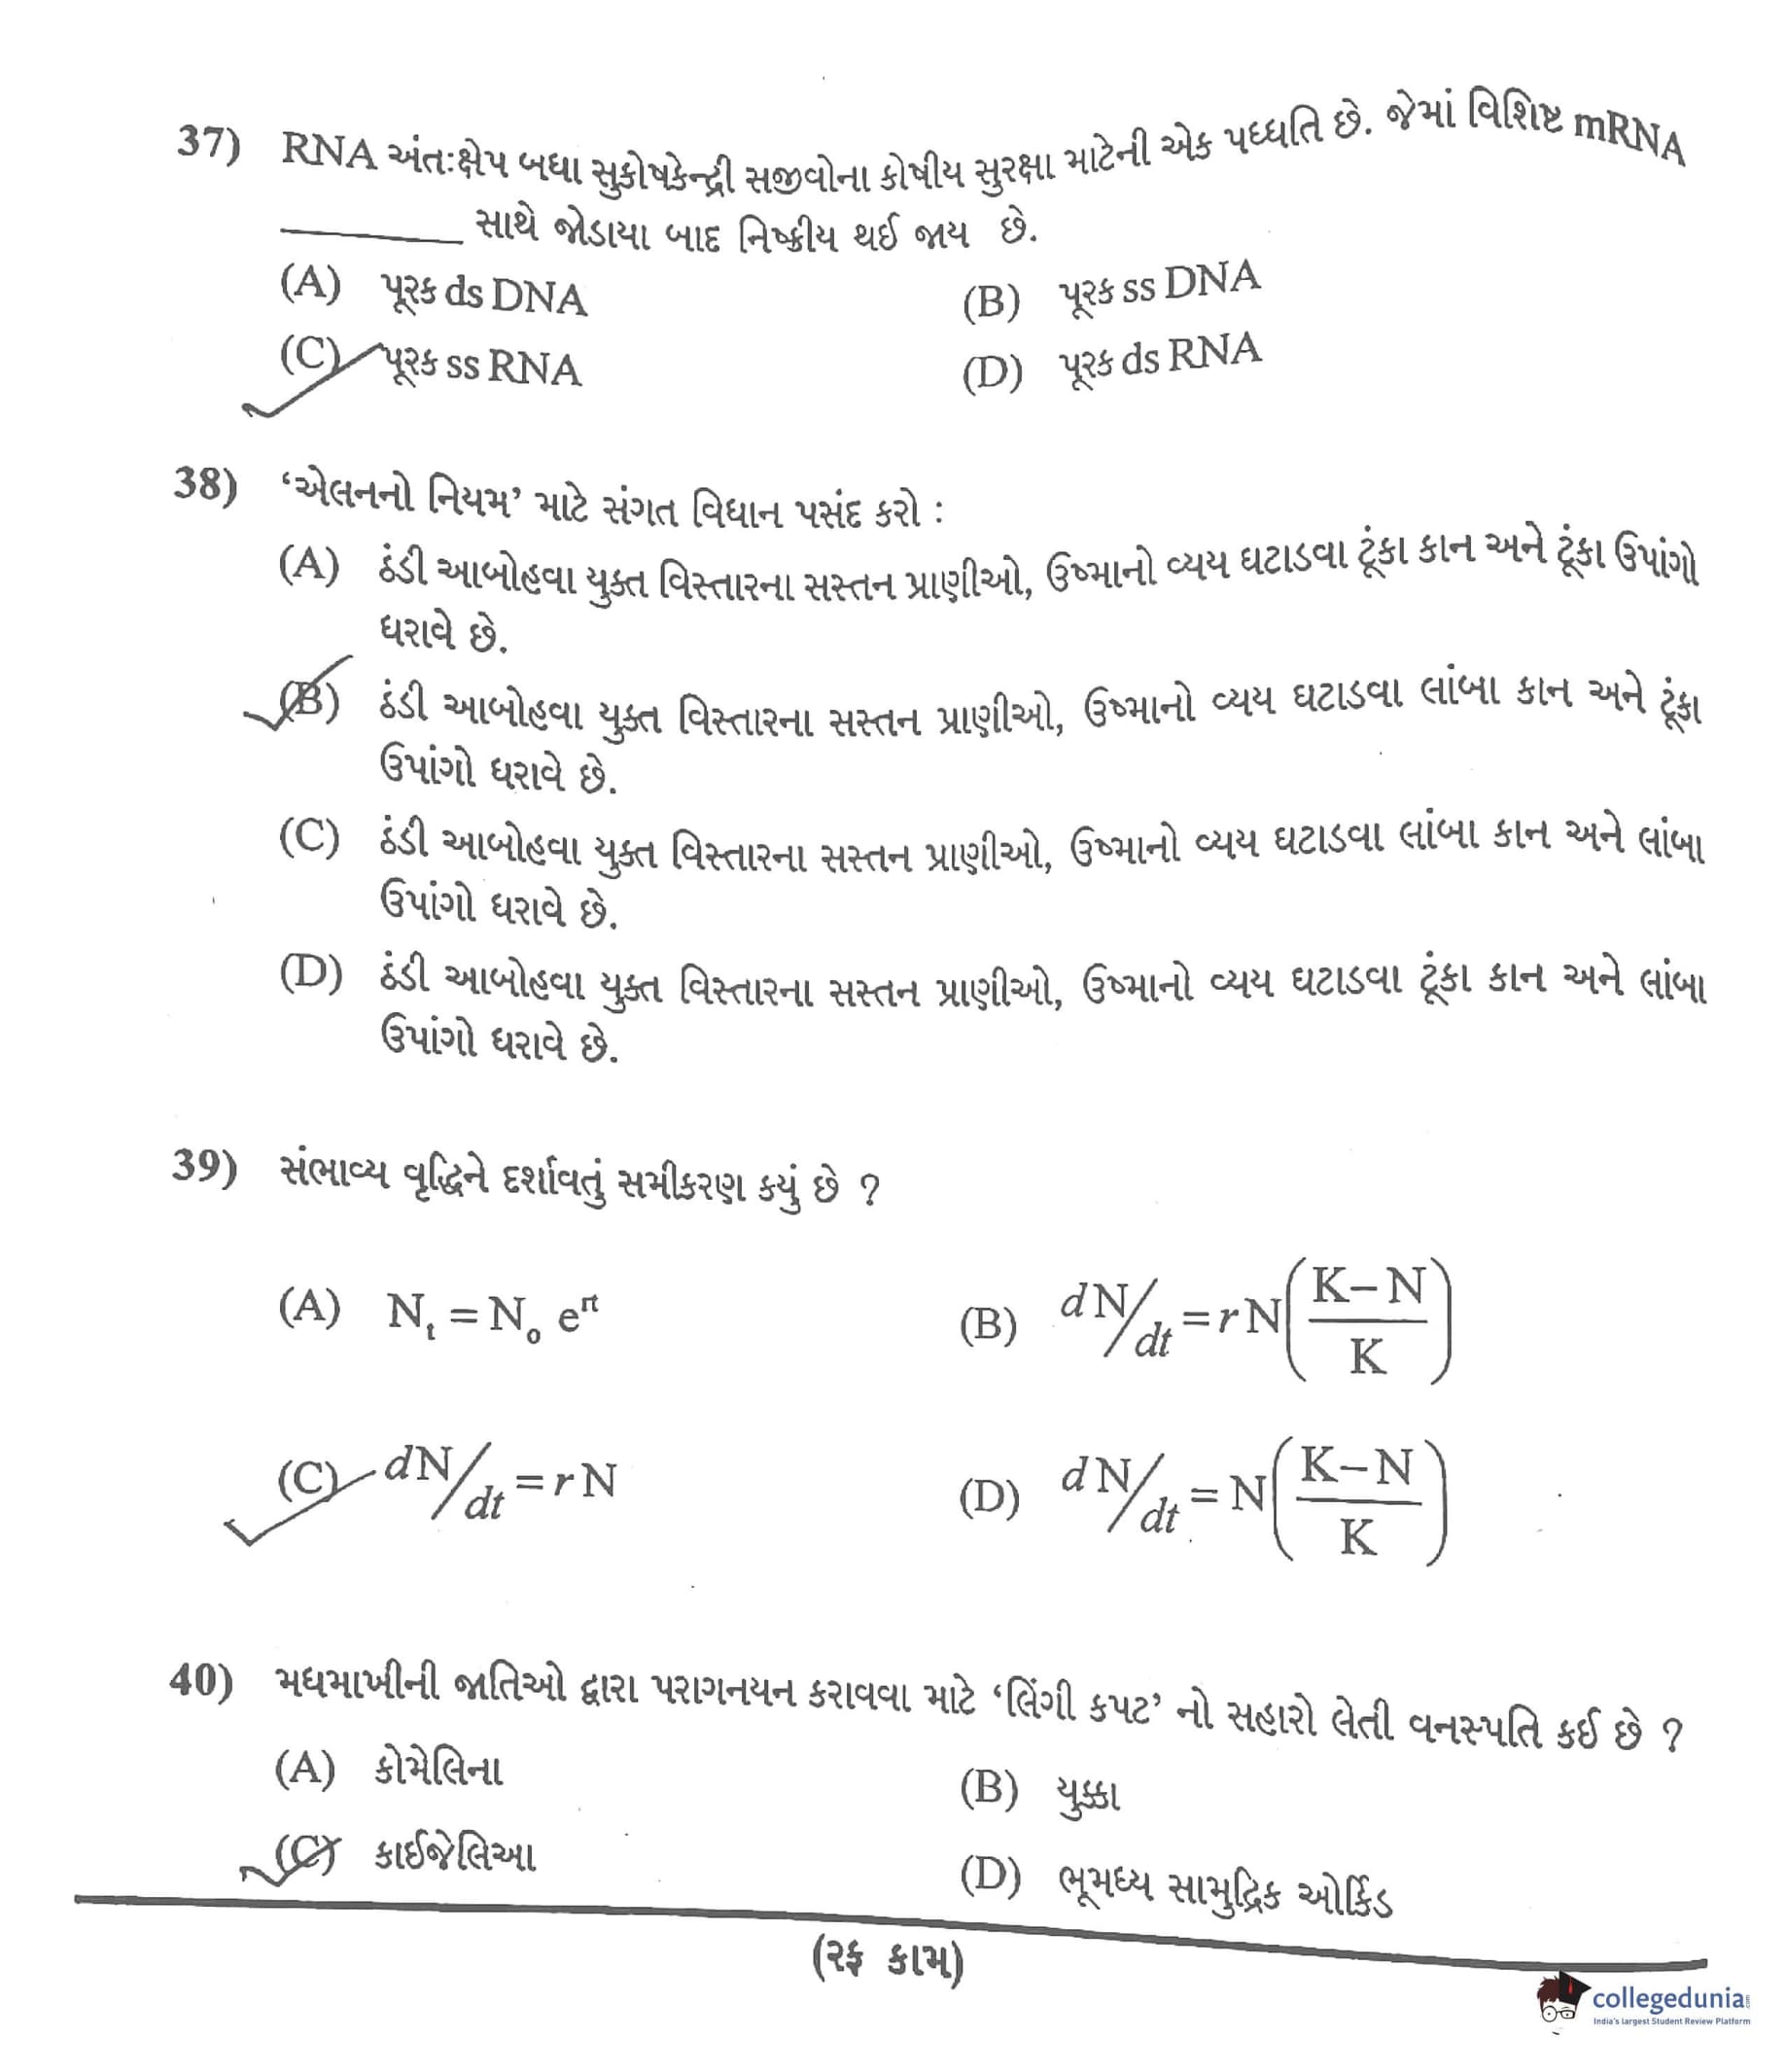 37) RNA અંતઃક્ષેપ બધા સુકોષકેન્દ્રી સજીવોના કોષીય સુરક્ષા માટેની એક પધ્ધતિ છે. જેમાં વિશિષ્ટ mRNA
________ સાથે જોડાયા બાદ નિષ્ક્રીય થઈ જાય છે.
(A) પૂરક ds DNA (B) પૂરક ss DNA
(C) પૂરક ss RNA (D) પૂરક ds RNA
38) ‘એલનનો નિયમ’ માટે સંગત વિધાન પસંદ કરો :
(A) ઠંડી આબોહવા યુક્ત વિસ્તારના સસ્તન પ્રાણીઓ, ઉષ્માનો વ્યય ઘટાડવા ટૂંકા કાન અને ટૂંકા ઉપાંગો
ધરાવે છે.
(B) ઠંડી આબોહવા યુક્ત વિસ્તારના સસ્તન પ્રાણીઓ, ઉષ્માનો વ્યય ઘટાડવા લાંબા કાન અને ટૂંકા
ઉપાંગો ધરાવે છે.
(C) ઠંડી આબોહવા યુક્ત વિસ્તારના સસ્તન પ્રાણીઓ, ઉષ્માનો વ્યય ઘટાડવા લાંબા કાન અને લાંબા
ઉપાંગો ધરાવે છે.
(D) ઠંડી આબોહવા યુક્ત વિસ્તારના સસ્તન પ્રાણીઓ, ઉષ્માનો વ્યય ઘટાડવા ટૂંકા કાન અને લાંબા
ઉપાંગો ધરાવે છે.
39) સંભાવ્ય વૃદ્ધિને દર્શાવતું સમીકરણ કયું છે ?
(A) Nₜ = Nₒ eʳᵗ (B) dN/dt = rN((K−N)/K)
(C) dN/dt = rN (D) dN/dt = N((K−N)/K)
40) મધમાખીની જાતિઓ દ્વારા પરાગનયન કરાવવા માટે ‘લિંગી કપટ’ નો સહારો લેતી વનસ્પતિ કઈ છે ?
(A) કોમેલિના (B) યુક્કા
(C) કાઈજેલિઆ (D) ભૂમધ્ય સામુદ્રિક ઓર્કિડ
(રફ કામ)
collegedunia
India's largest Student Review Platform